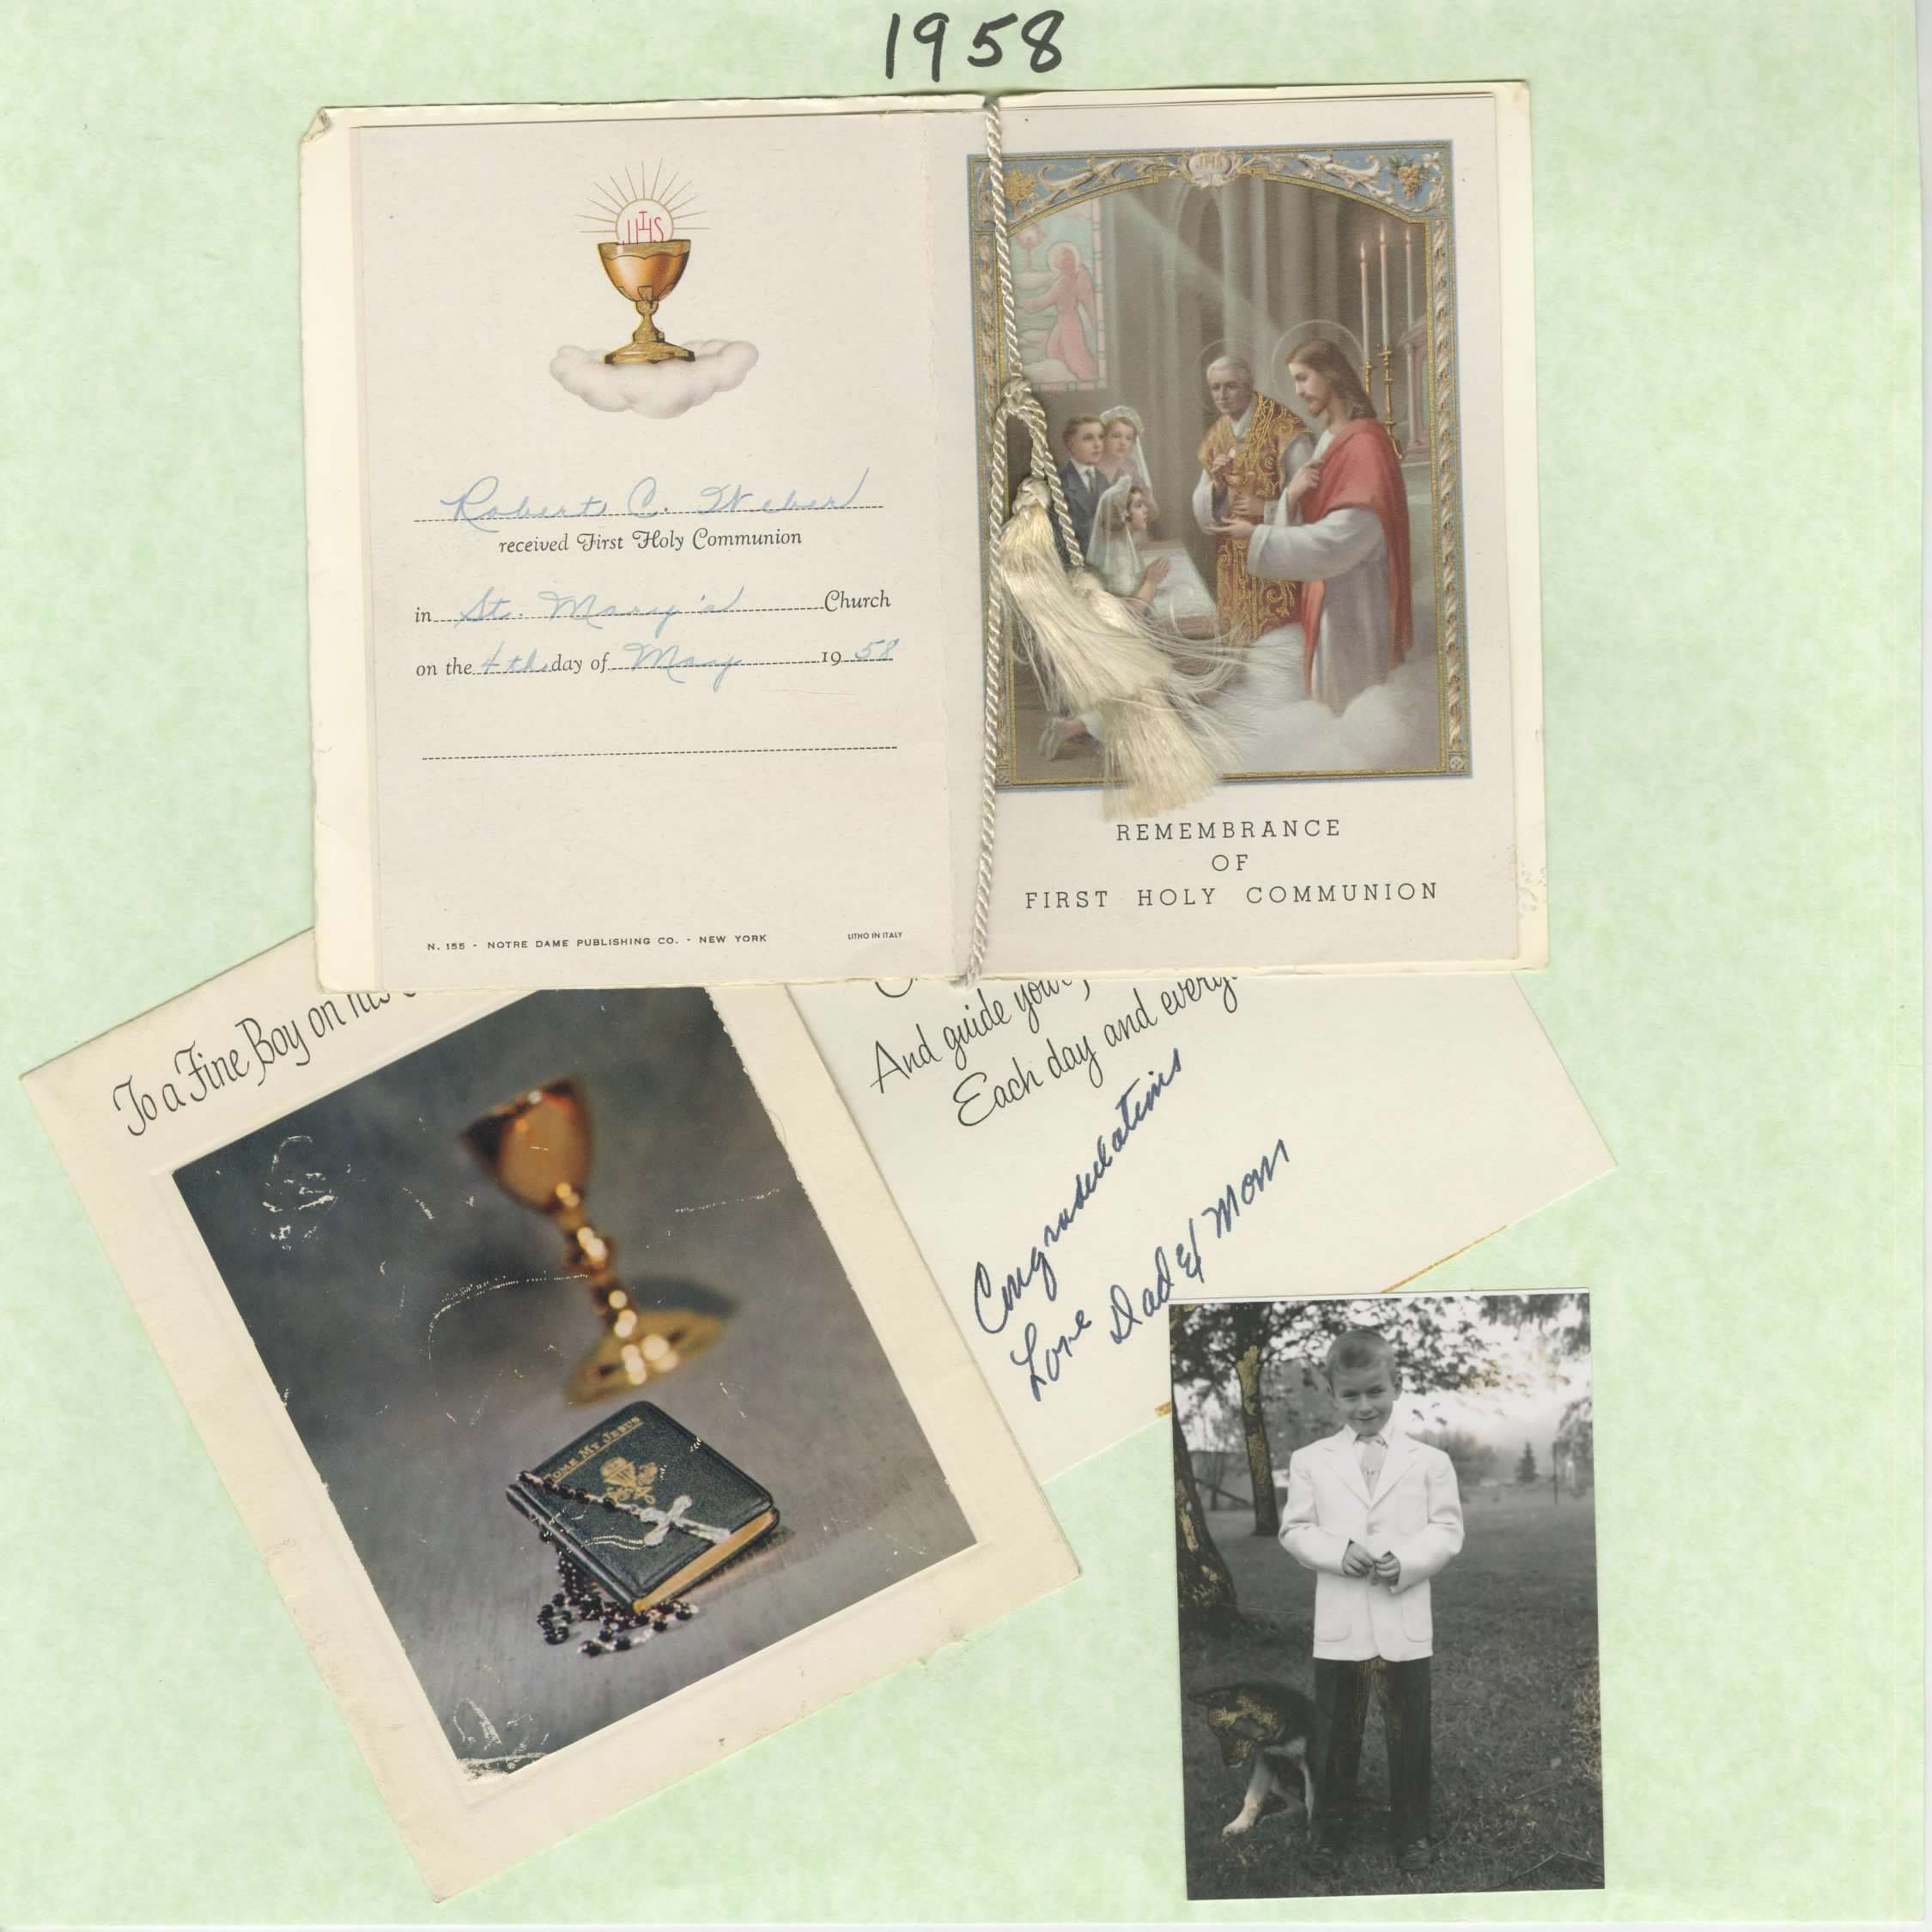 1958
JHS
JHS
Robert C. Weber
received First Holy Communion
in St. Mary's Church
on the 4th day of May 1958
N. 155 - NOTRE DAME PUBLISHING CO. - NEW YORK LITHO IN ITALY
REMEMBRANCE
OF
FIRST HOLY COMMUNION
To a Fine Boy on his
COME MY JESUS
And guide your
Each day and every
Congradulations
Love Dad & Mom